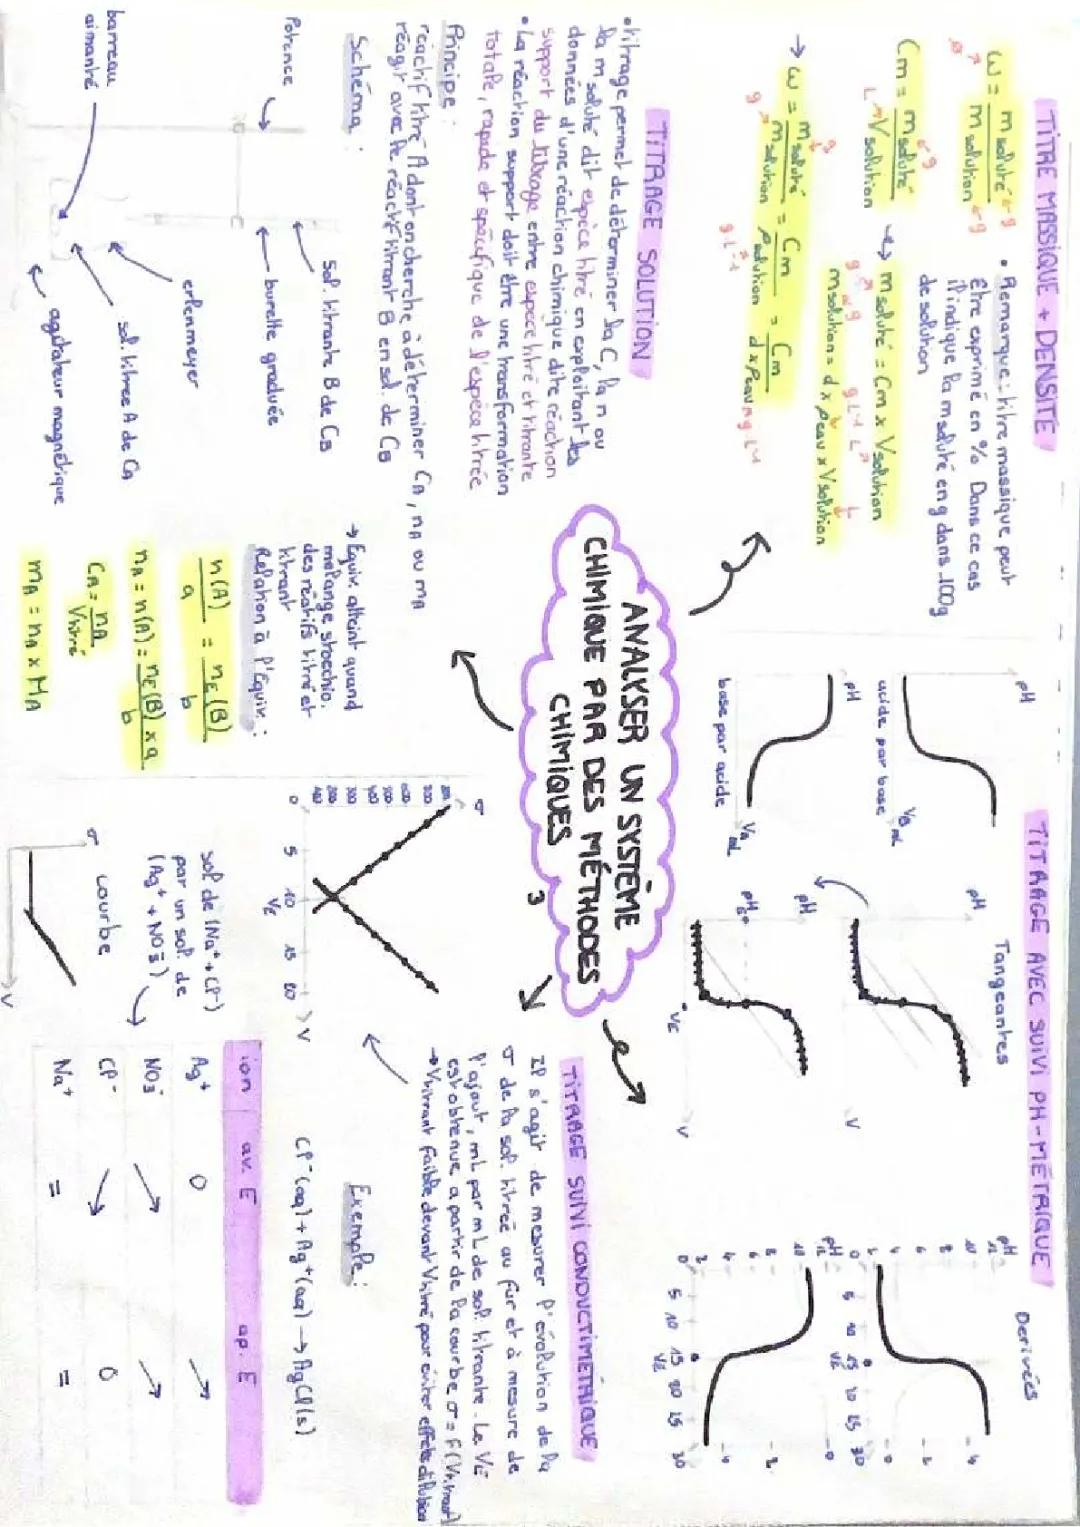 TITRE MASSIQUE + DENSITÉ
w = m soluté / m solution
Cm = m soluté / V solution
• Remarque : titre massique peut
être exprimé en % Dans ce cas
il indique la m soluté en g dans 100g
de solution
m soluté = Cm x V solution
m solution = d x ρeau x V solution
→ w = m soluté / m solution = Cm / ρ solution = Cm / d x ρeau
TITRAGE SOLUTION
• titrage permet de déterminer la C, la n ou
la m soluté dit espèce titré en exploitant les
données d'une réaction chimique dite réaction
support du titrage entre espèce titré et titrante
• La réaction support doit être une transformation
totale, rapide et spécifique de l'espèce titrée
Principe :
réactif titré A dont on cherche à déterminer CA, nA ou mA
réagit avec le réactif titrant B en sol. de CB
Schéma :
Potence
sol. titrante B de CB
burette graduée
erlenmeyer
sol. titrée A de CA
agitateur magnétique
barreau
aimanté
→ Equiv. atteint quand
mélange stoechio.
des réactifs titré et
titrant
Relation à l'équiv. :
n(A) / a = nE(B) / b
nA = n(A) = nE(B) x a / b
CA = nA / V titré
mA = nA x MA
ANALYSER UN SYSTÈME
CHIMIQUE PAR DES MÉTHODES
CHIMIQUES 3
TITRAGE AVEC SUIVI PH-MÉTRIQUE
pH
VB mL
acide par base
pH
VA mL
base par acide
Tangeantes
pH
V
pH
pHE
VE
V
Derivées
pH
0 5 10 15 20 25 30
VE
pH
0 5 10 15 20 25 30
VE
TITRAGE SUIVI CONDUCTIMÉTRIQUE
Il s'agit de mesurer l'évolution de la
σ de la sol. titrée au fur et à mesure de
l'ajout, mL par mL de sol. titrante. Le VE
est obtenue a partir de la courbe σ = f(V titrant)
→ V titrant faible devant V titré pour éviter effets dilution
Exemple :
Cl⁻(aq) + Ag⁺(aq) → AgCl(s)
σ
0 5 10 15 20 V
VE
sol de (Na⁺ + Cl⁻)
par un sol. de
(Ag⁺ + NO3⁻)
σ courbe
V
ion av. E ap. E
Ag⁺ 0 ↗
NO3⁻ ↗ ↗
Cl⁻ ↘ 0
Na⁺ = =